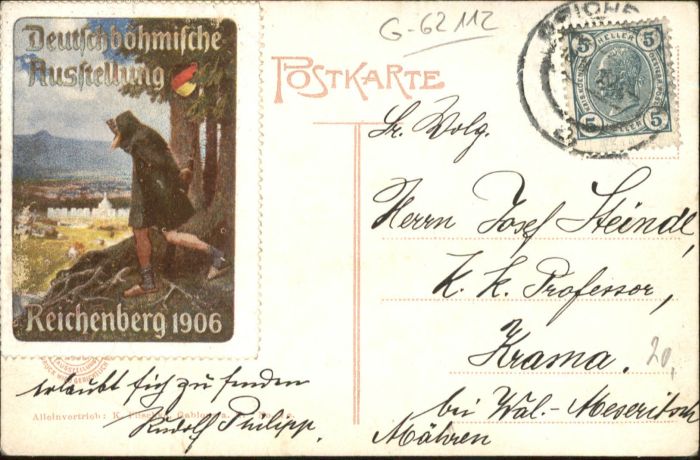 Deutschböhmische
Ausstellung
Reichenberg 1906
G-62112
POSTKARTE
HELLER
5 5
5 5
Sr. Wolg.
Herrn Josef Steindl,
K. k. Professor,
Krasna.
20,
bei Wal.-Meseritsch
Mähren
AUSSTELLUNG
erlaubt sich zu senden
Rudolf Philipp.
Alleinvertrieb: K.